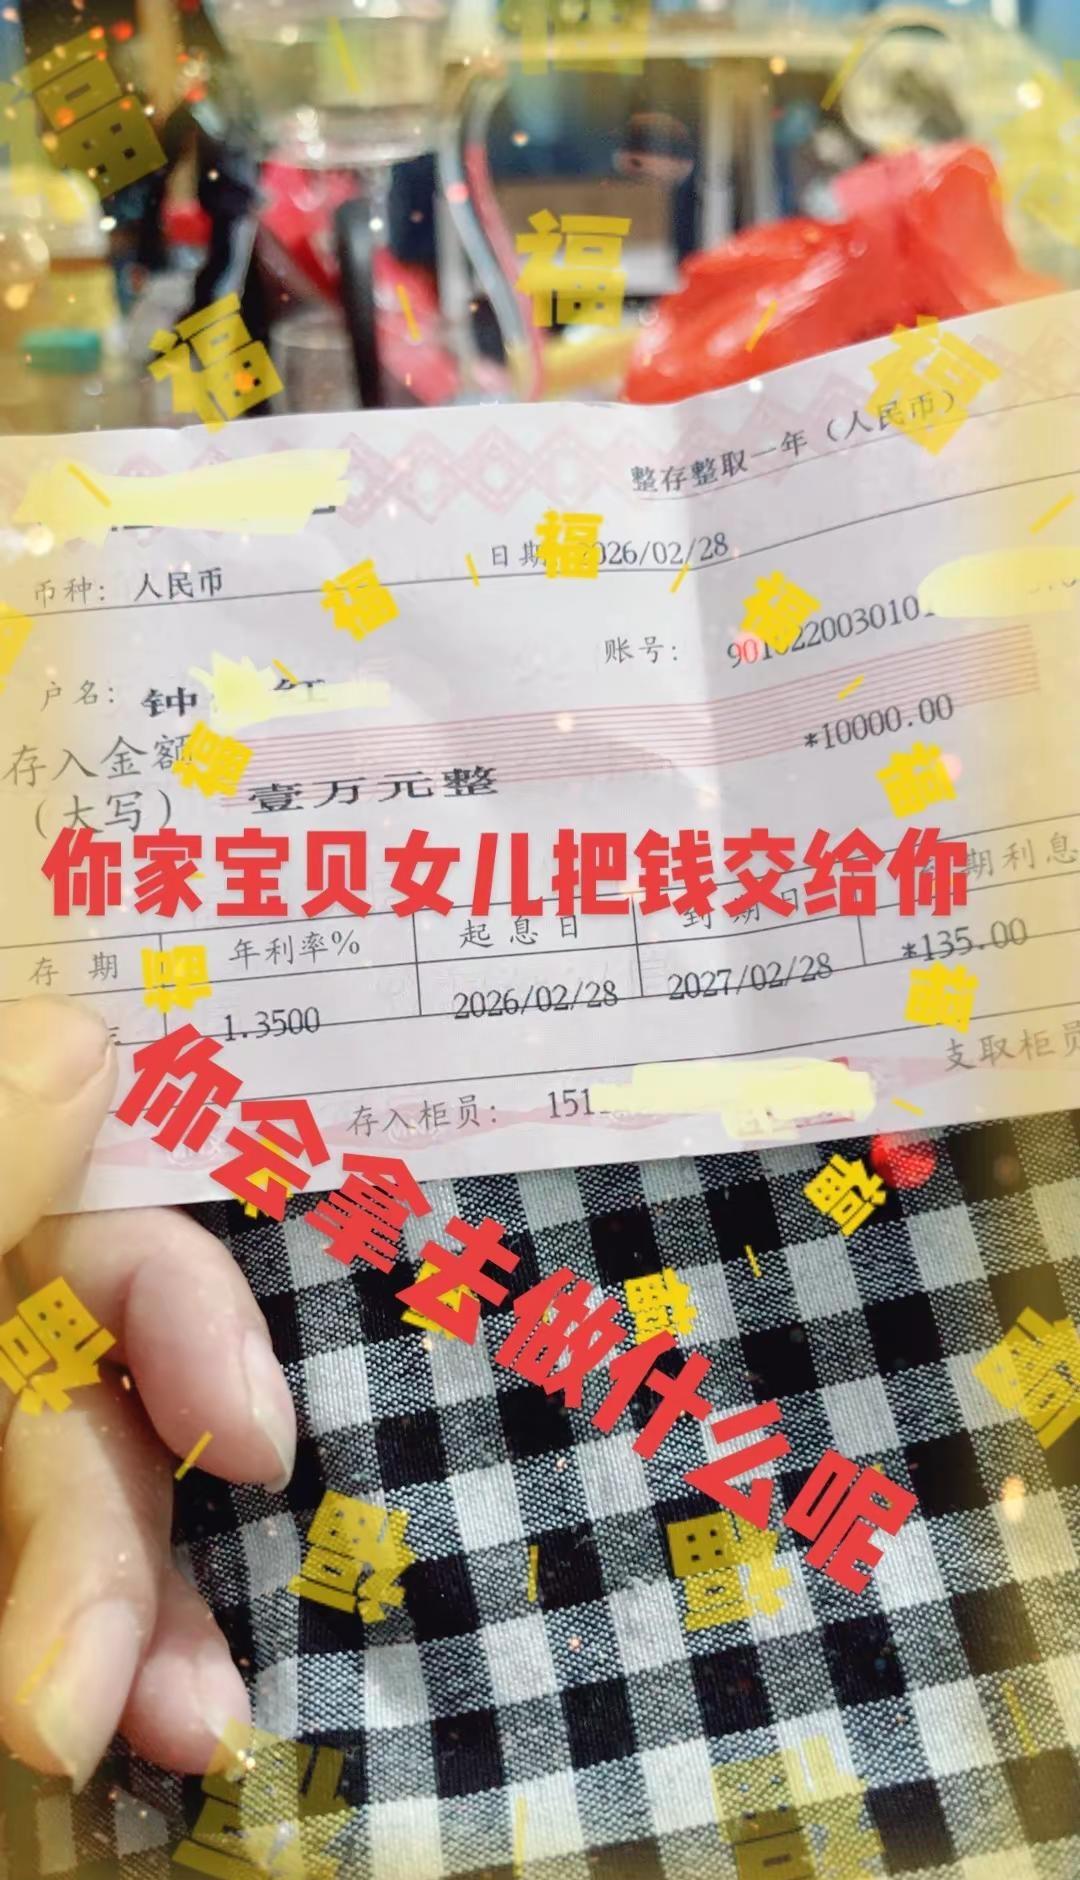 福
福
福
福
福
整存整取一年（人民币）
日期
2026/02/28
福
币种：
人民币
福
福
账号：
户名：
钟
福
存入金额
（大写）
壹万元整
*10000.00
福
你家宝贝女儿把钱交给你
期利息
存 期
年利率%
起息日
到期日
福
1.3500
2026/02/28
2027/02/28
*135.00
福
你会拿去做什么呢
存入柜员：
151
支取柜员
福
福
福
福
福
福
福